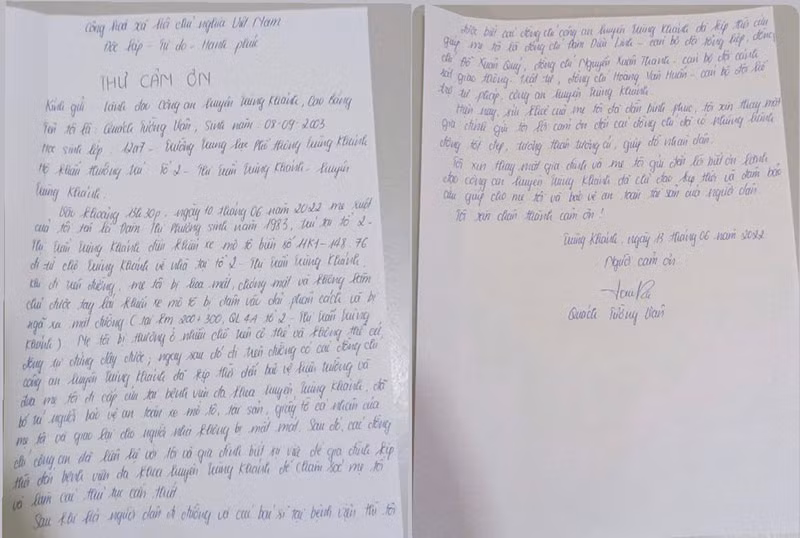 Cộng hòa xã hội chủ nghĩa Việt Nam
Độc lập - Tự do - Hạnh phúc
THƯ CẢM ƠN
Kính gửi lãnh đạo Công an huyện Trùng Khánh, Cao Bằng
Tên tôi là: Quách Tường Vân, Sinh năm: 08-09-2003
Học sinh lớp 12A7 - Trường Trung học Phổ thông Trùng Khánh
Hộ khẩu thường trú: Tổ 2 - Thị trấn Trùng Khánh - huyện
Trùng Khánh.
Vào khoảng 15h30p, ngày 10 tháng 06 năm 2022 mẹ ruột
của tôi tên là Đàm Thị Phường sinh năm 1983, trú tại tổ 2 -
Thị trấn Trùng Khánh điều khiển xe mô tô biển số 11K1-148.76
đi từ chợ Trùng Khánh về nhà tại tổ 2 - Thị trấn Trùng Khánh,
khi đi trên đường, mẹ tôi bị hoa mắt, chóng mặt và không làm
chủ được tay lái khiến xe mô tô bị đâm vào dải phân cách và bị
ngã ra mặt đường (tại km 200+300, QL4A tổ 2 - Thị trấn Trùng
Khánh). Mẹ tôi bị thương ở nhiều chỗ trên cơ thể và không thể cử
động tự đứng dậy được, ngay sau đó đi trên đường có các đồng chí
công an huyện Trùng Khánh đã kịp thời đến bảo vệ hiện trường và
đưa mẹ tôi đi cấp cứu tại bệnh viện đa khoa huyện Trùng Khánh, đã
bố trí người bảo vệ an toàn xe mô tô, tài sản, giấy tờ cá nhân của
mẹ tôi và giao lại cho người nhà không bị mất mát. Sau đó, các đồng
chí công an đã liên lạc với tôi và gia đình biết sự việc để gia đình kịp
thời đến bệnh viện đa khoa huyện Trùng Khánh để chăm sóc mẹ tôi
và làm các thủ tục cần thiết.
Sau khi hỏi người dân đi đường và các bác sĩ tại bệnh viện thì tôi
được biết các đồng chí công an huyện Trùng Khánh đã kịp thời cứu
giúp mẹ tôi là đồng chí Đàm Diệu Linh - cán bộ đội tổng hợp, đồng
chí Bế Xuân Quý, đồng chí Nguyễn Xuân Thanh - cán bộ đội cảnh
sát giao thông - trật tự, đồng chí Hoàng Văn Huấn - cán bộ đội hỗ
trợ tư pháp, công an huyện Trùng Khánh.
Hiện nay, sức khoẻ của mẹ tôi đã dần bình phục, tôi xin thay mặt
gia đình gửi tới lời cảm ơn đối các đồng chí đã có những hành
động tốt đẹp, tương thân tương ái, giúp đỡ nhân dân.
Tôi xin thay mặt gia đình và mẹ tôi gửi đến lời biết ơn lãnh
đạo công an huyện Trùng Khánh đã chỉ đạo kịp thời và đảm bảo
cứu giúp cho mẹ tôi và bảo vệ an toàn tài sản của người dân.
Tôi xin chân thành cảm ơn!
Trùng Khánh, ngày 13 tháng 06 năm 2022
Người cảm ơn
Quách Tường Vân